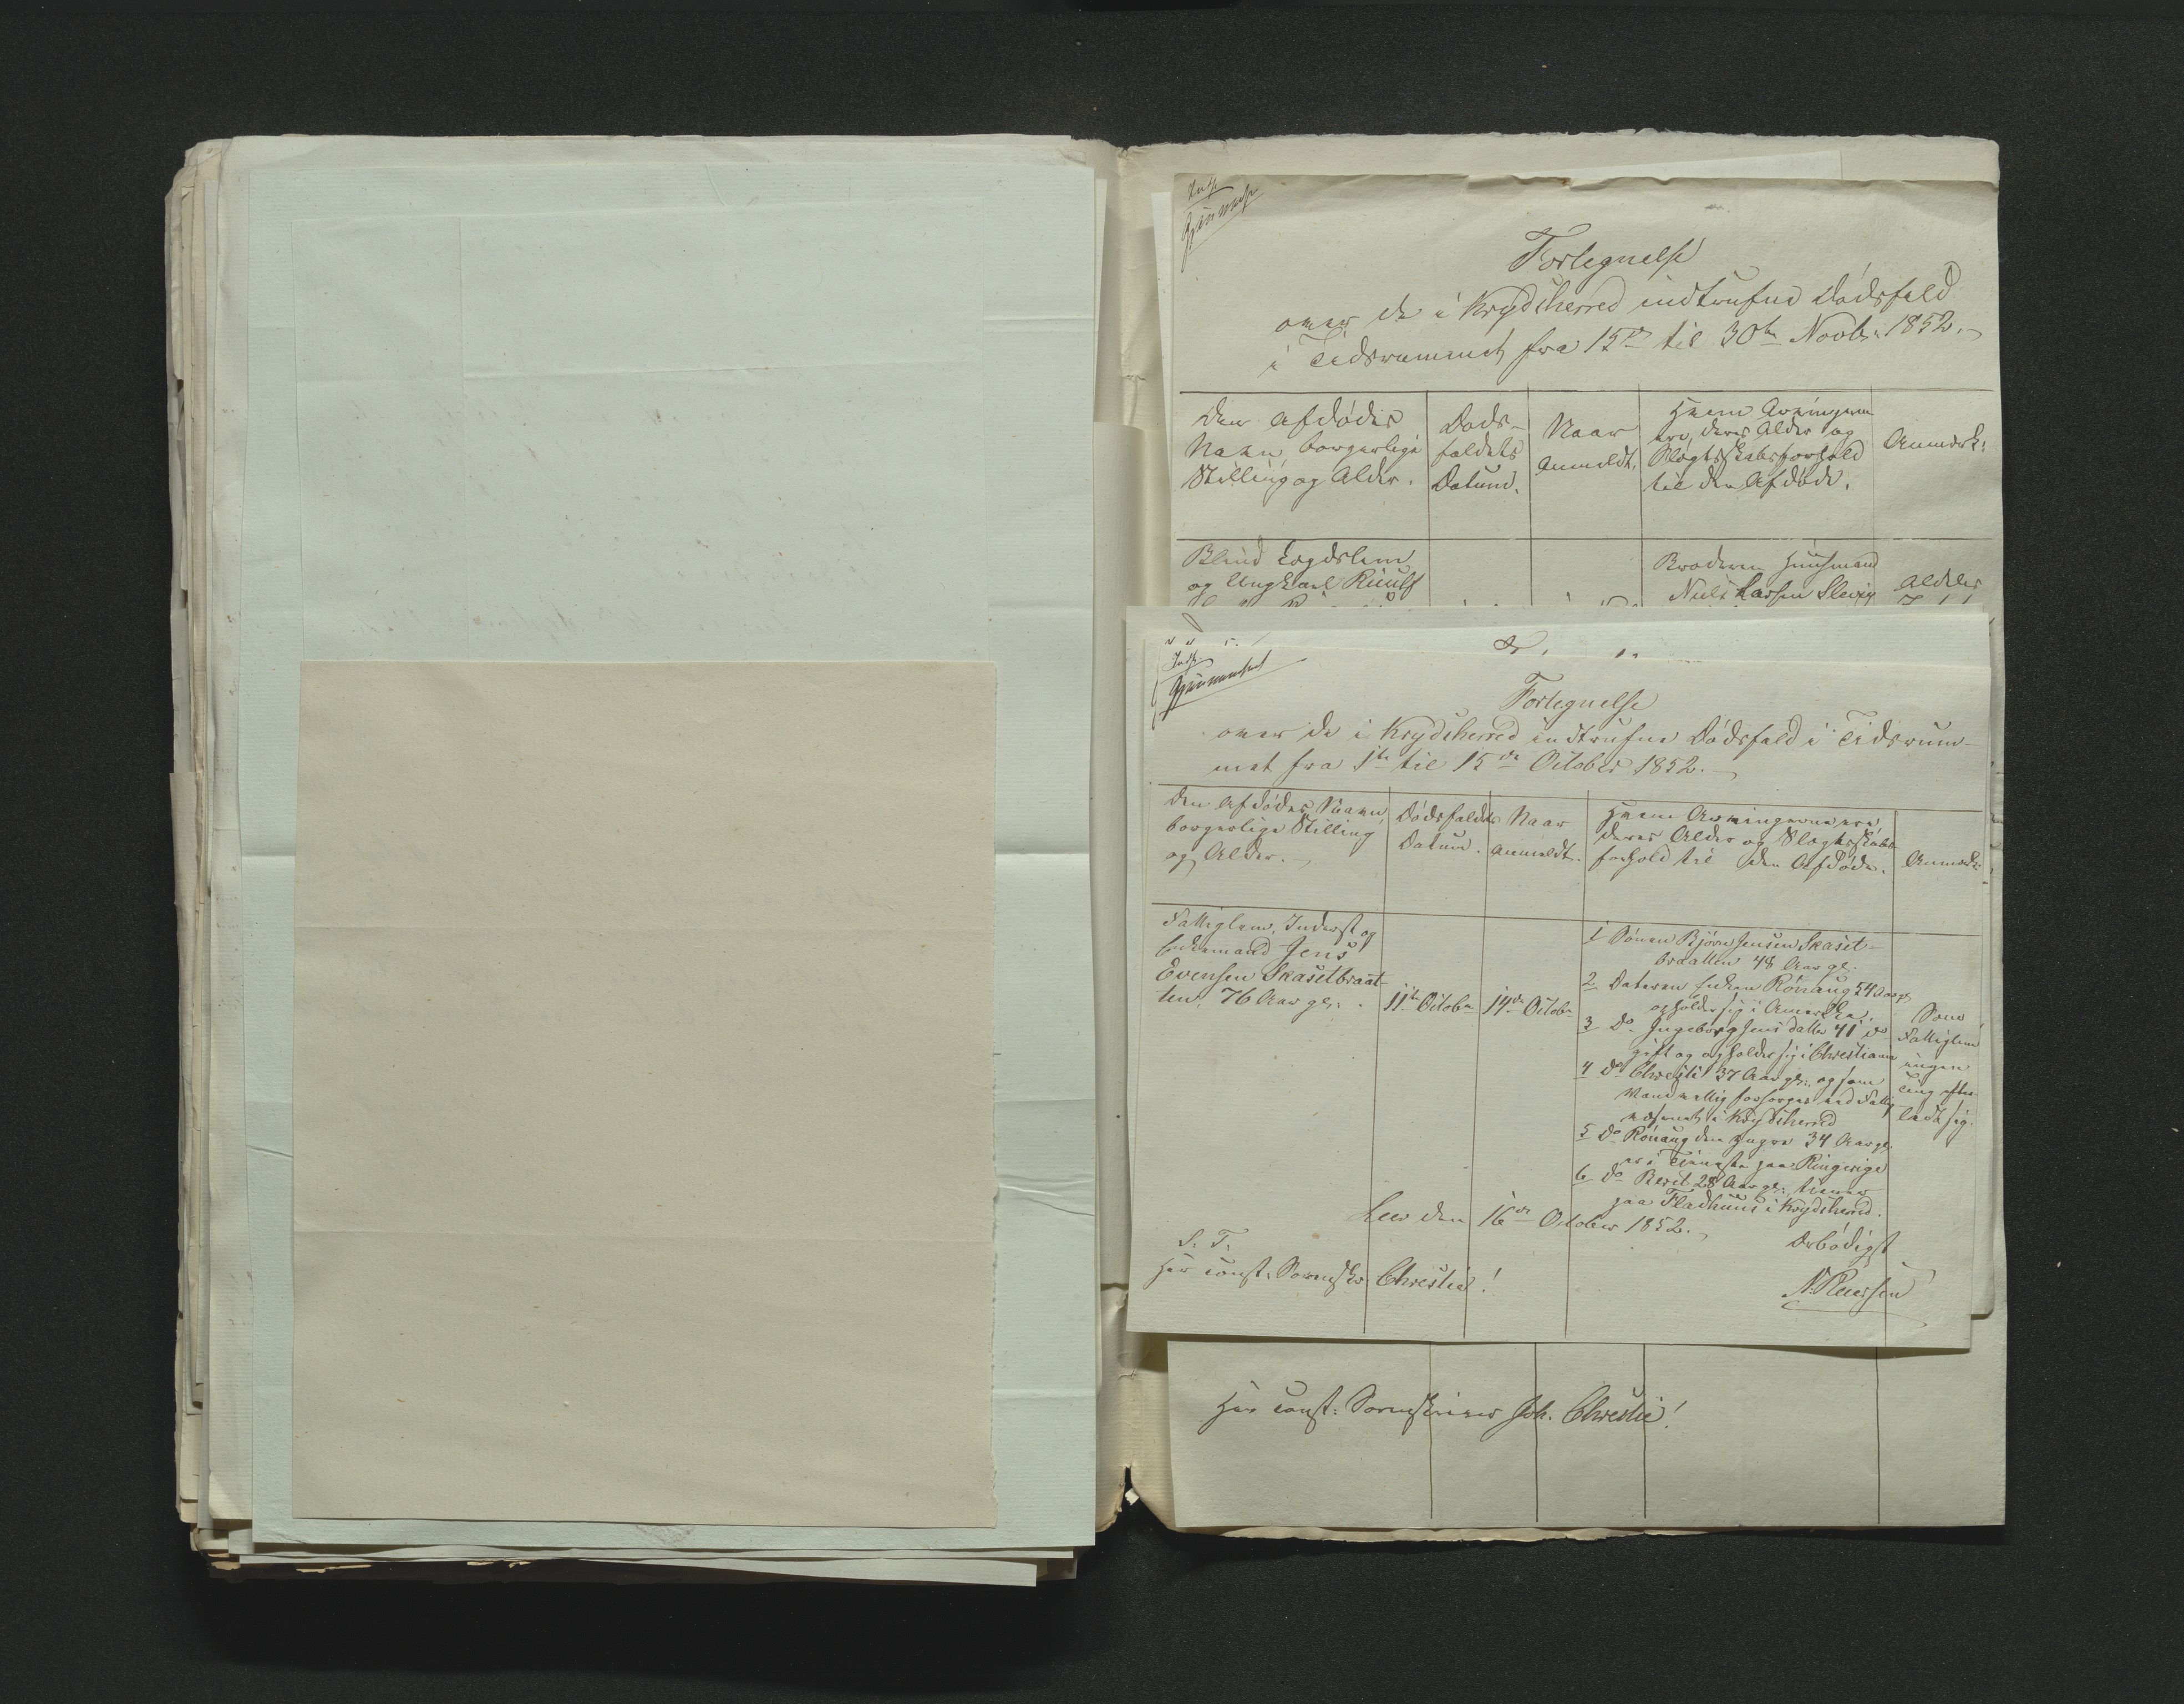 Indf.
Fortegnelse
over de i Krydsherred indtrufne Dødsfald
i Tidsrummet fra 15de til 30te Novbr 1852.
Den Afdødes
Navn, borgerlige
Stilling og Alder.
Døds-
faldets
Datum.
Naar
Anmeldt.
Hvem Arvingerne
ere, deres Alder og
Slægtskabsforhold
til den Afdøde.
Anmærk:
Blind Lægdslem
og Ungkarl
Broderen Huusmand
Niels Larsen
Aldeles
Indf.
Fortegnelse
over de i Krydsherred indtrufne Dødsfald i Tidsrum-
met fra 1te til 15de October 1852.
Den Afdødes Navn,
borgerlige Stilling
og Alder.
Dødsfaldets
Datum.
Naar
Anmeldt.
Hvem Arvingerne ere,
deres Alder og Slægtskabs-
forhold til den Afdøde.
Anmærk:
Fattiglem, Inderst og
Enkemand Jens
Evensen Skasetbraat-
ten, 76 Aar gl:
11te Octobr
14de Octobr
1 Sønen Bjørn Jensen Skaset-
braatten 48 Aar gl.
2 Datteren Enken Rønaug 54 Aar gl.
opholder sig i Amerika.
3 Do Ingeborg Jensdatter 41 do
gift og opholder sig i Christiania
4 Do Christi 37 Aar gl:, og som
Vanvittig forsørges ved Fattig-
væsenet i Krydsherred
5 Do Rønaug den yngre 34 Aar gl.
er i Tjeneste paa Ringerige
6 Do Berit 28 Aar gl:, tjener
paa Fladhuus i Krydsherred.
Som
Fattiglem
ingen
Ting efter-
ladt sig.
Leer den 16de October 1852.
Ærbødigst
S. T.
Hr const: Sorenskr: Christie!
N. Ruersen
Hr const: Sorenskriver Joh. Christie!